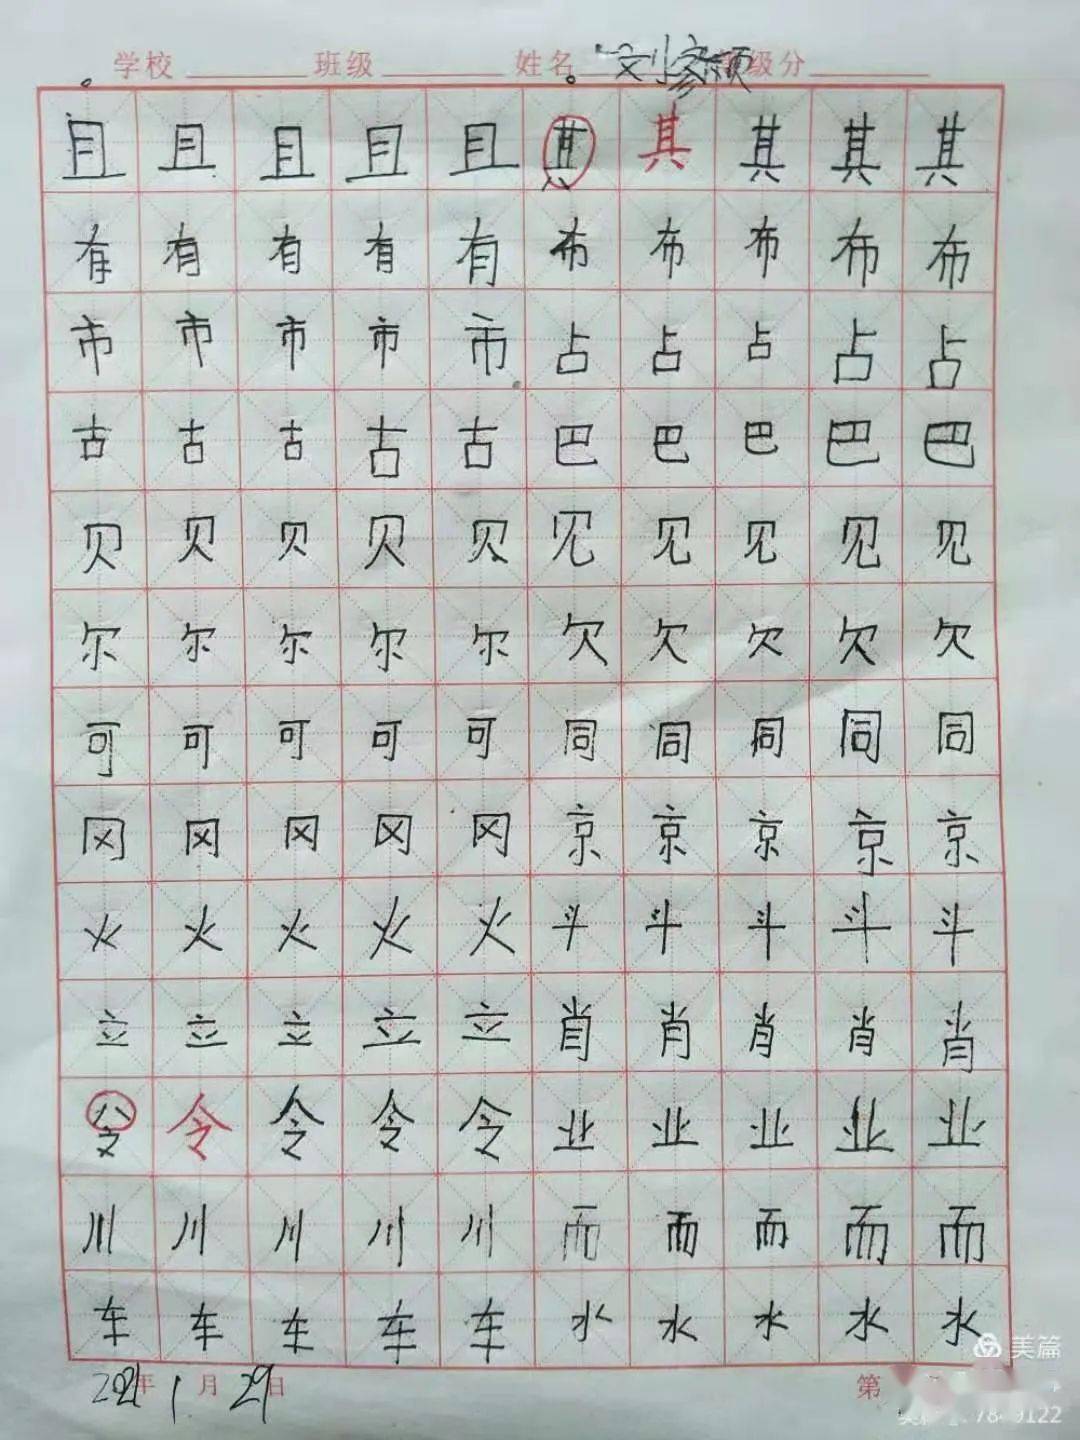 学校 班级 姓名 级分
且 且 且 且 且 其 其 其 其 其
有 有 有 有 有 布 布 布 布 布
市 市 市 市 市 占 占 占 占 占
古 古 古 古 古 巴 巴 巴 巴 巴
贝 贝 贝 贝 贝 见 见 见 见 见
尔 尔 尔 尔 尔 欠 欠 欠 欠 欠
可 可 可 可 可 同 同 同 同 同
冈 冈 冈 冈 冈 京 京 京 京 京
火 火 火 火 火 斗 斗 斗 斗 斗
立 立 立 立 立 肖 肖 肖 肖 肖
令 令 令 令 令 业 业 业 业 业
川 川 川 川 川 而 而 而 而 而
车 车 车 车 车 水 水 水 水 水
美篇
2021年 1月 29日 第